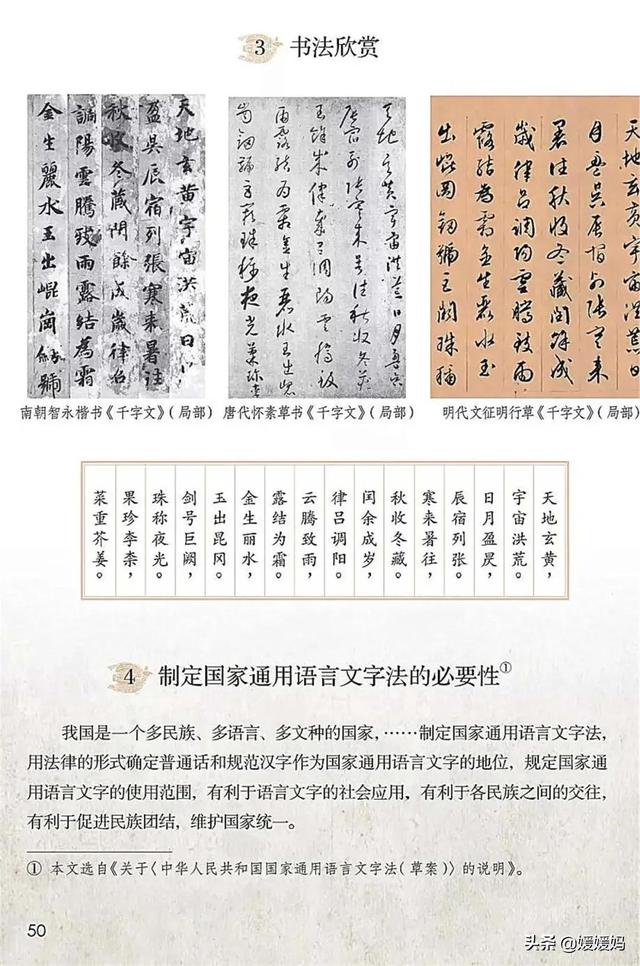 3 书法欣赏
天地玄黄宇宙洪荒日
盈昃辰宿列張寒来暑往
秋收冬藏閏餘成歲律吕
調陽雲騰致雨露結為霜
金生麗水玉出崐崗劒號
南朝智永楷书《千字文》（局部）
天地玄黄宇宙洪荒日月盈昃
辰宿列張寒来暑往秋收冬藏
雨露結為霜金生麗水玉出崐
唐代怀素草书《千字文》（局部）
天地玄黄宇宙洪荒
日月盈昃辰宿列張寒来
暑往秋收冬藏閏餘成
歲律吕調陽雲騰致雨
露結為霜金生麗水玉
出崐岡劒號巨闕珠稱
明代文征明行草《千字文》（局部）
天地玄黄，
宇宙洪荒。
日月盈昃，
辰宿列张。
寒来暑往，
秋收冬藏。
闰余成岁，
律吕调阳。
云腾致雨，
露结为霜。
金生丽水，
玉出昆冈。
剑号巨阙，
珠称夜光。
果珍李柰，
菜重芥姜。
4 制定国家通用语言文字法的必要性①
我国是一个多民族、多语言、多文种的国家，……制定国家通用语言文字法，
用法律的形式确定普通话和规范汉字作为国家通用语言文字的地位，规定国家通
用语言文字的使用范围，有利于语言文字的社会应用，有利于各民族之间的交往，
有利于促进民族团结，维护国家统一。
① 本文选自《关于〈中华人民共和国国家通用语言文字法（草案）〉的说明》。
50
头条 @媛媛妈